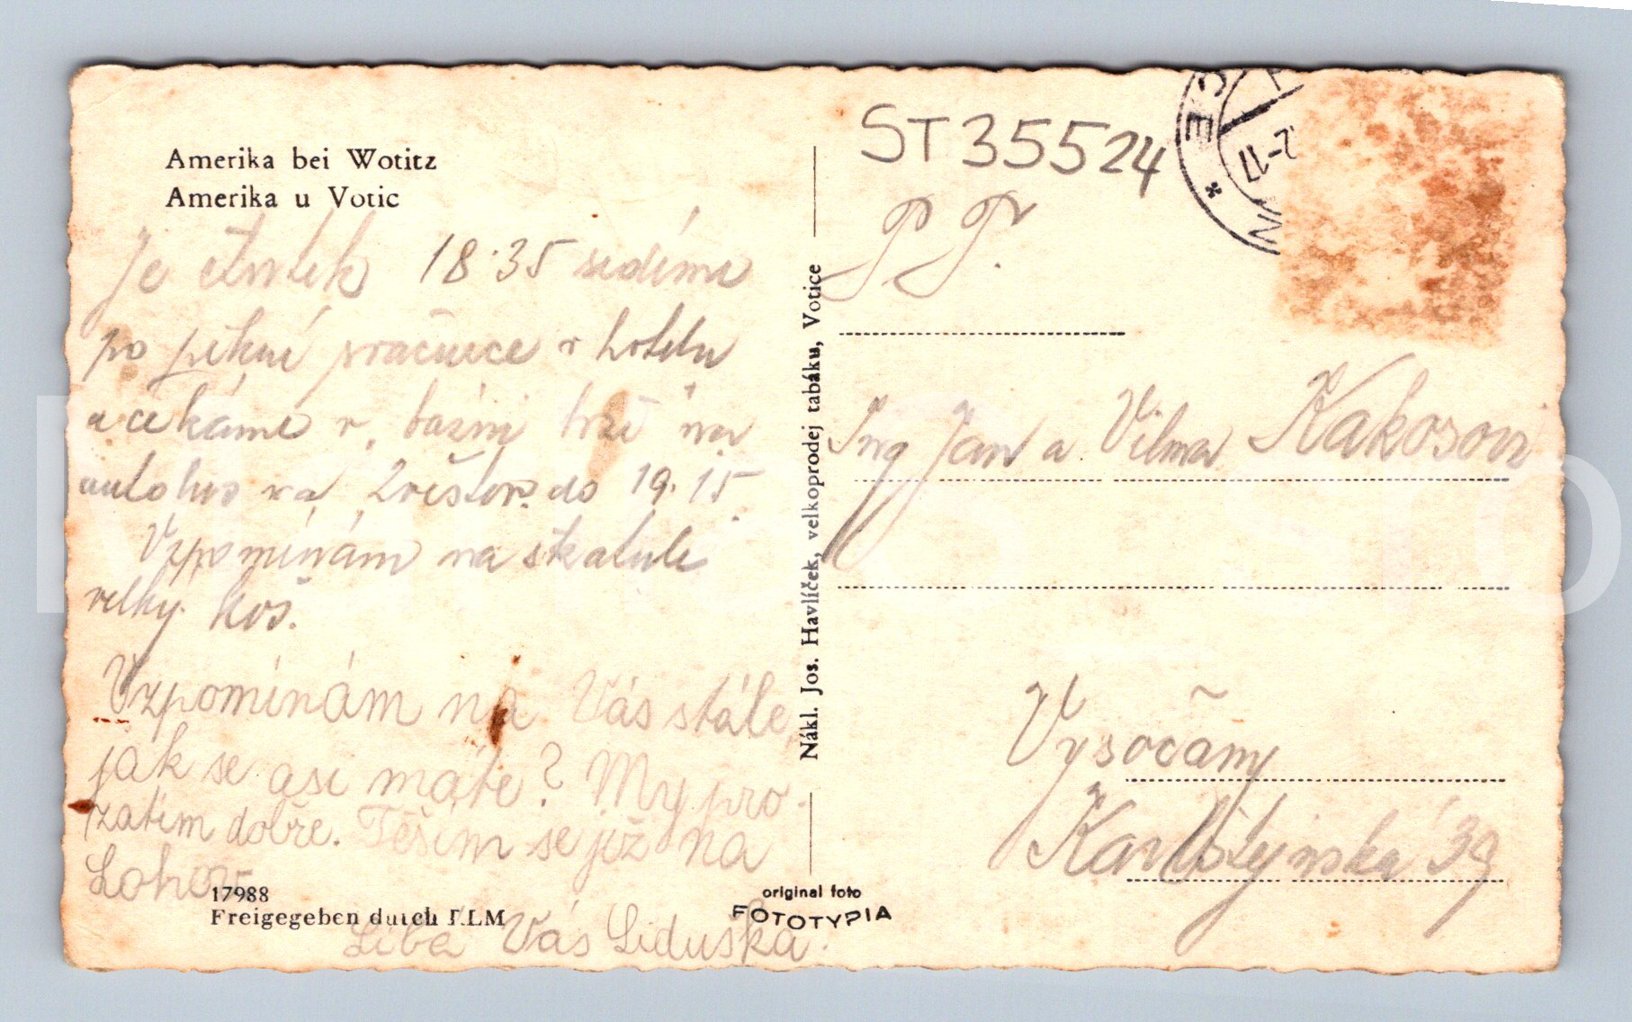 Amerika bei Wotitz
Amerika u Votic
Je čtvrtek 18·35 sedíme
po pěkné procházce v hotelu
a čekáme v. na
autobus na do 19.15.
Vzpomínám na škatule
velký koš.
Vzpomínám na Vás stále,
jak se asi máte? My pro
zatím dobře. Těším se již na
Lohov
Líbá Vás Liduška.
17988
Freigegeben durch RLM
original foto
FOTOTYPIA
Nákl. Jos. Havlíček, velkoprodej tabáku, Votice
ST35524
P. P.
Ing Jan a Vilma Kakosovi
Vysočany
Karlštejnská 39